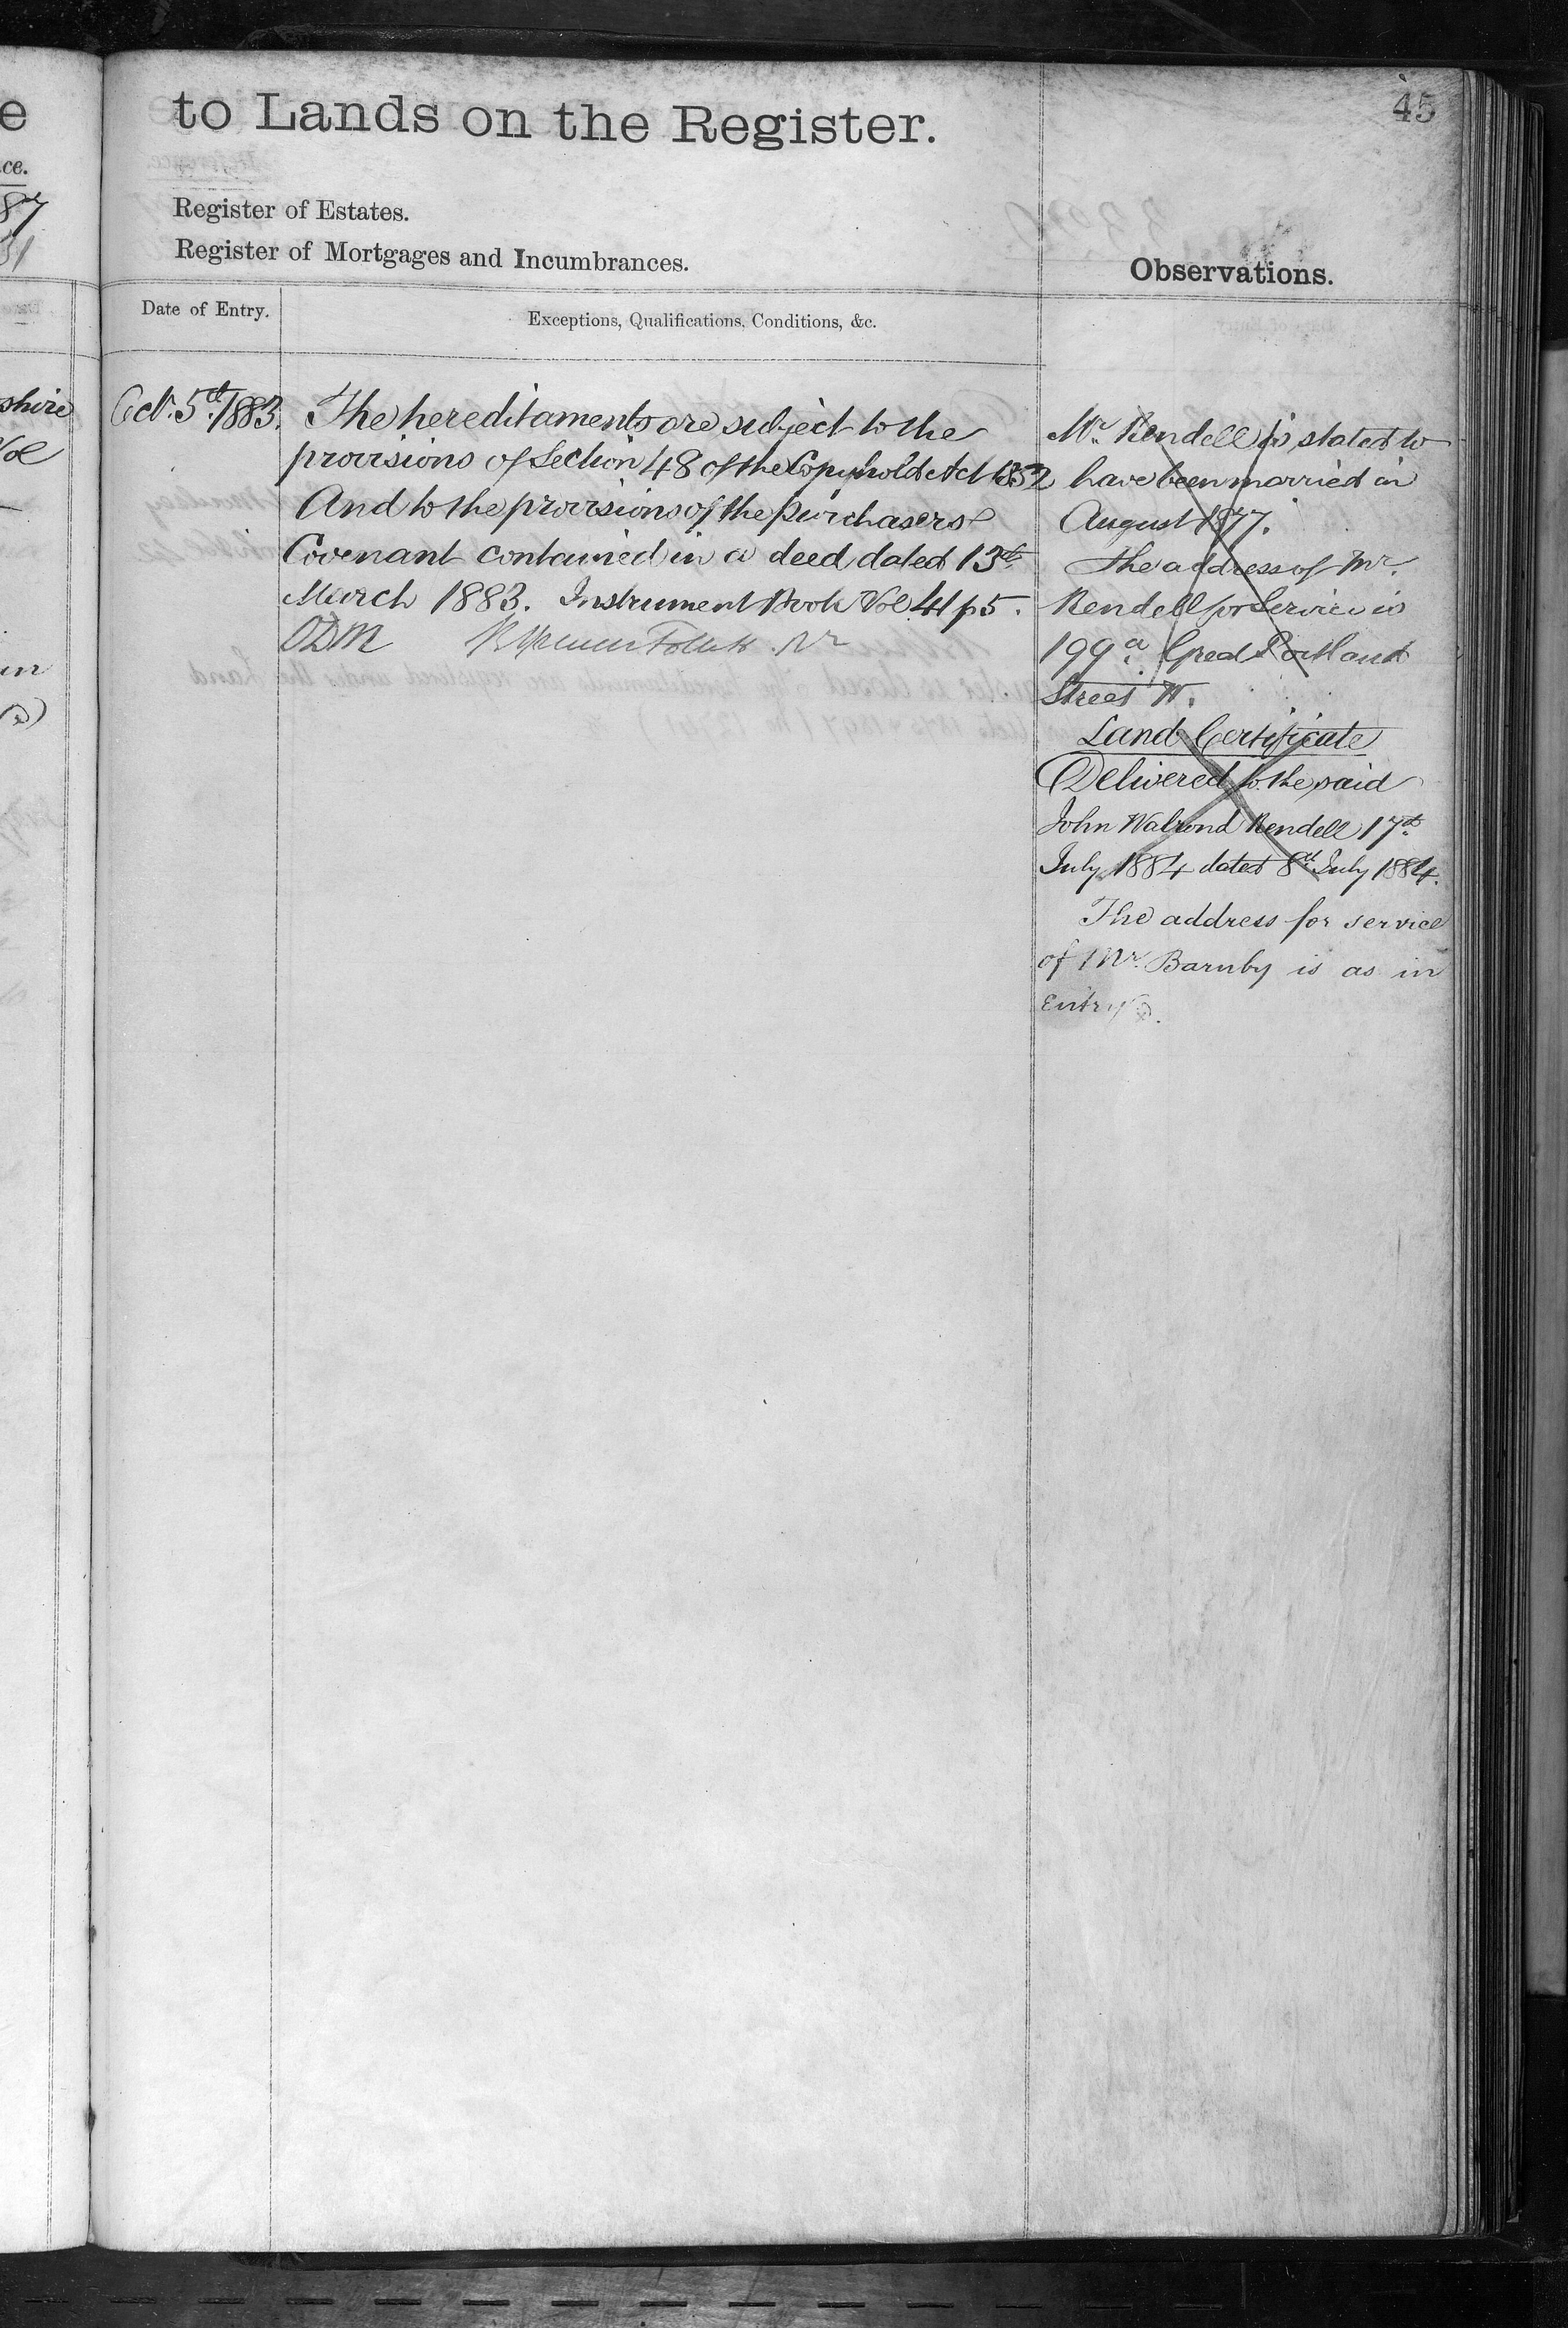 45
to Lands on the Register.
Register of Estates.
Register of Mortgages and Incumbrances.
Observations.
Date of Entry.
Exceptions, Qualifications, Conditions, &c.
Oct. 5th 1883.
The hereditaments are subject to the
provisions of Section 48 of the Copyhold Act 1852
And to the provisions of the purchasers
Covenant contained in a deed dated 13th
March 1883. Instrument Book Vol 41 p 5.
ODM
Mr. Rendell is stated to
have been married in
August 1877.
The address of Mr.
Rendell for Service is
199a Great Portland
Street W.
Land Certificate
Delivered to the said
John Walrond Rendell 17th
July 1884 dated 8th July 1884.
The address for service
of Mr. Barnby is as in
Entry
e
ce.
87
31
shire
Vol
in